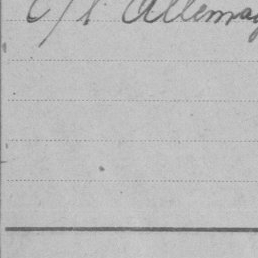 c/l' Allemag